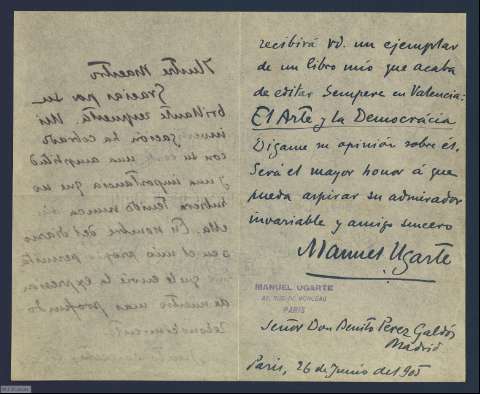 recibirá vd. un ejemplar
de un libro mío que acaba
de editar Sempere en Valencia:
El Arte y la Democrácia
Dígame su opinión sobre él.
Será el mayor honor á que
pueda aspirar su admirador
invariable y amigo sincero
Manuel Ugarte
MANUEL UGARTE
RUE DE MONCEAU
PARIS
Señor Don Benito Pérez Galdós
Madrid
Paris, 26 de Junio del 905
Ilustre Maestro
Gracias por su
brillante respuesta. Mi
ha cobrado
con su una amplitud
y una importancia que no
hubiera tenido nunca sin
ella. En nombre del diario
y en el mio propio
que le envíe la expresion
de nuestro mas profundo